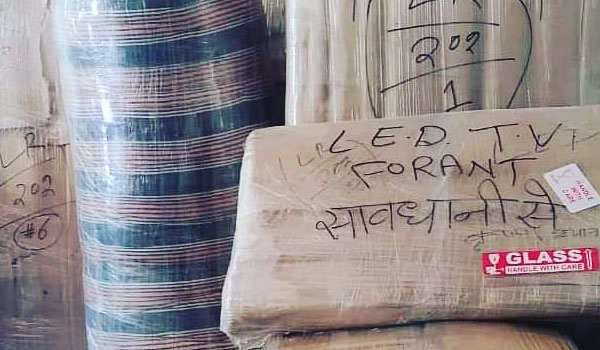 202
1
LR
202
#6
L.E.D. T.V
FORANT
HANDLE
WITH
CARE
सावधानी से
GLASS
HANDLE WITH CARE